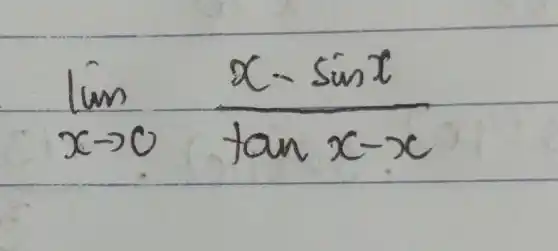 lim x→0 (x - sin x) / (tan x - x)